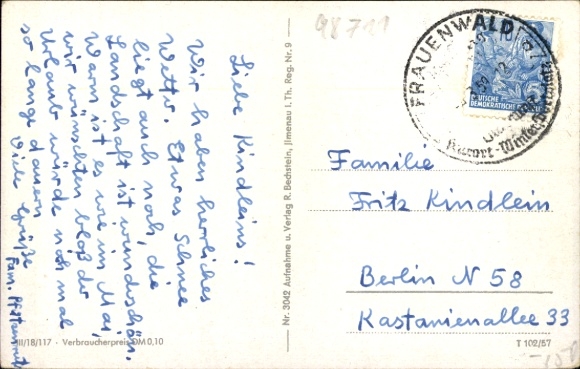 Liebe Kindleins!
Wir haben herrliches
Wetter. Etwas Schnee
liegt auch noch, die
Landschaft ist wunderschön.
Warm ist es wie im Mai,
wir wünschten bloß der
Urlaub würde noch mal
so lange dauern
Viele Grüße
Fam.
III/18/117 · Verbraucherpreis DM 0,10
Nr. 3042 Aufnahme u. Verlag R. Bechstein, Jlmenau i. Th. Reg. Nr. 9
98711
FRAUENWALD
DEUTSCHE
DEMOKRATISCHE
Kurort - Wintersport
Familie
Fritz Kindlein
Berlin N 58
Kastanienallee 33
T 102/57